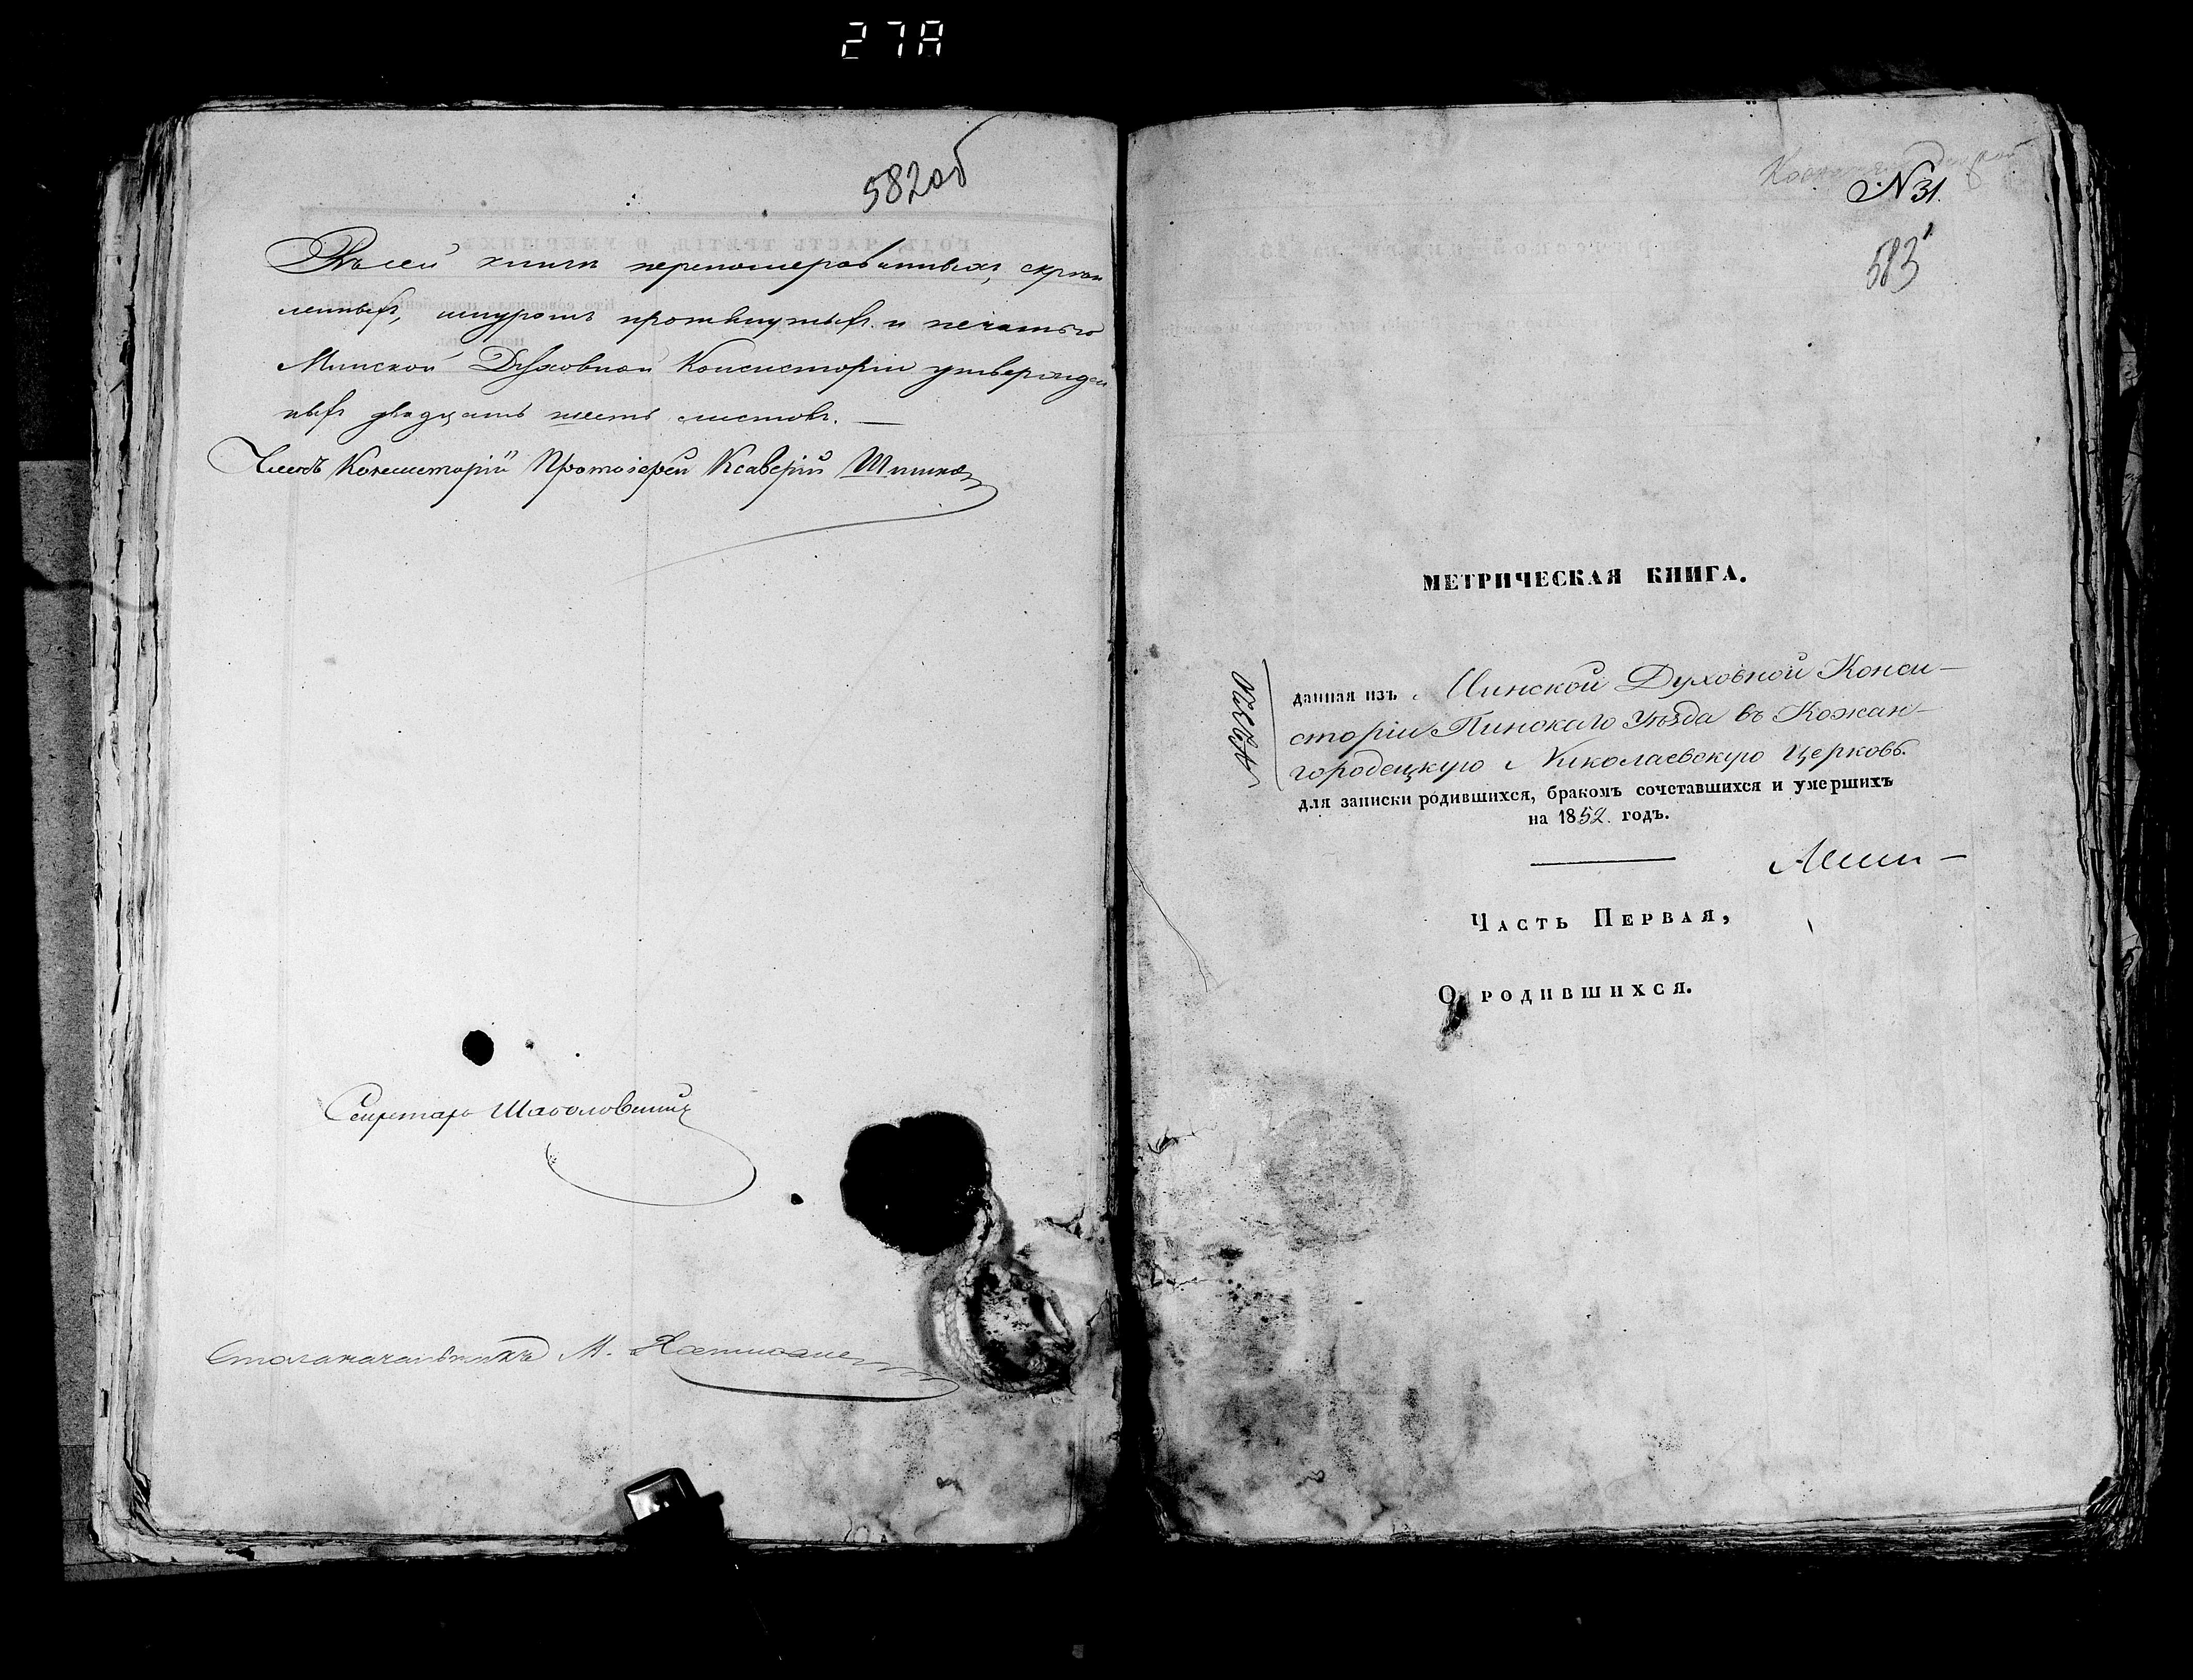 27A
582 об
Въ сей книги перономерованныхъ, скреп
ленныхъ, шнуромъ протянутыхъ и печатью
Минской Духовной Консисторіи утвержден
ныхъ двадцать шесть листовъ. —
Членъ Консисторіи Протоіерей Ксаверій
Секретарь
Столоначальникъ М.
N 31.
583
МЕТРИЧЕСКАЯ КНИГА.
данная изъ Минской Духовной Конси-
сторіи Пинскаго Уѣзда въ Кожан-
городецкую Николаевскую Церковь.
для записки родившихся, бракомъ сочетавшихся и умершихъ
на 1852 годъ.
Часть Первая,
О родившихся.